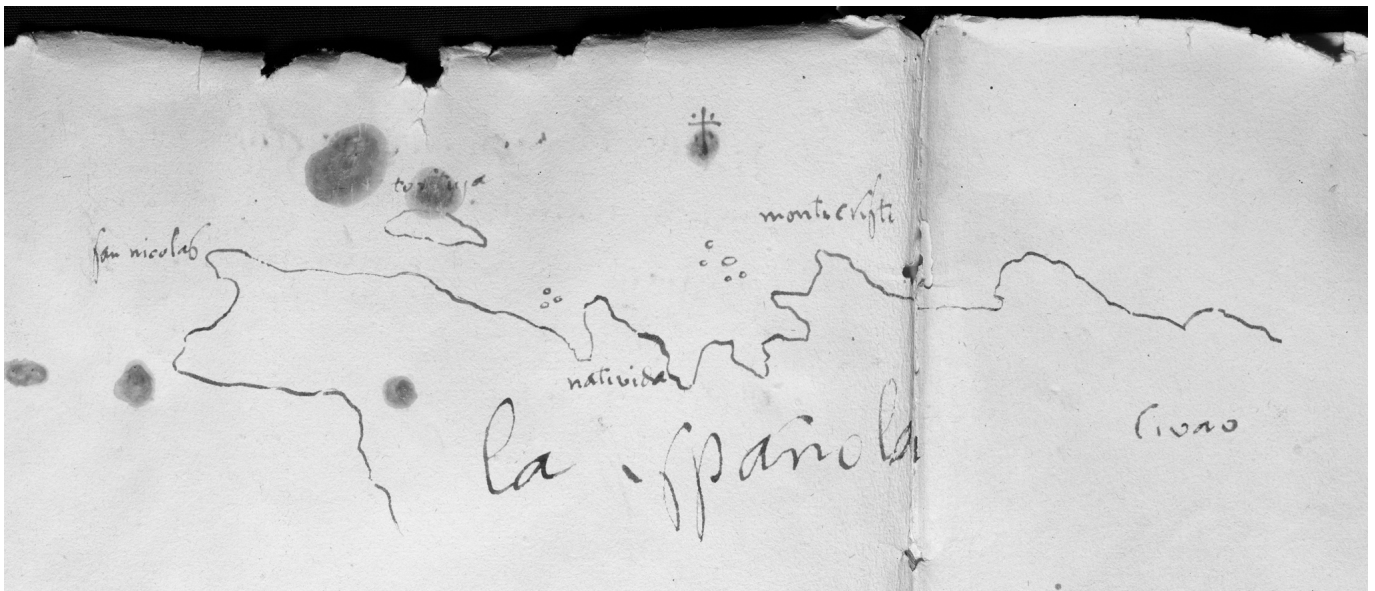 tortuga
monte cristi
san nicolas
natividad
la española
civao